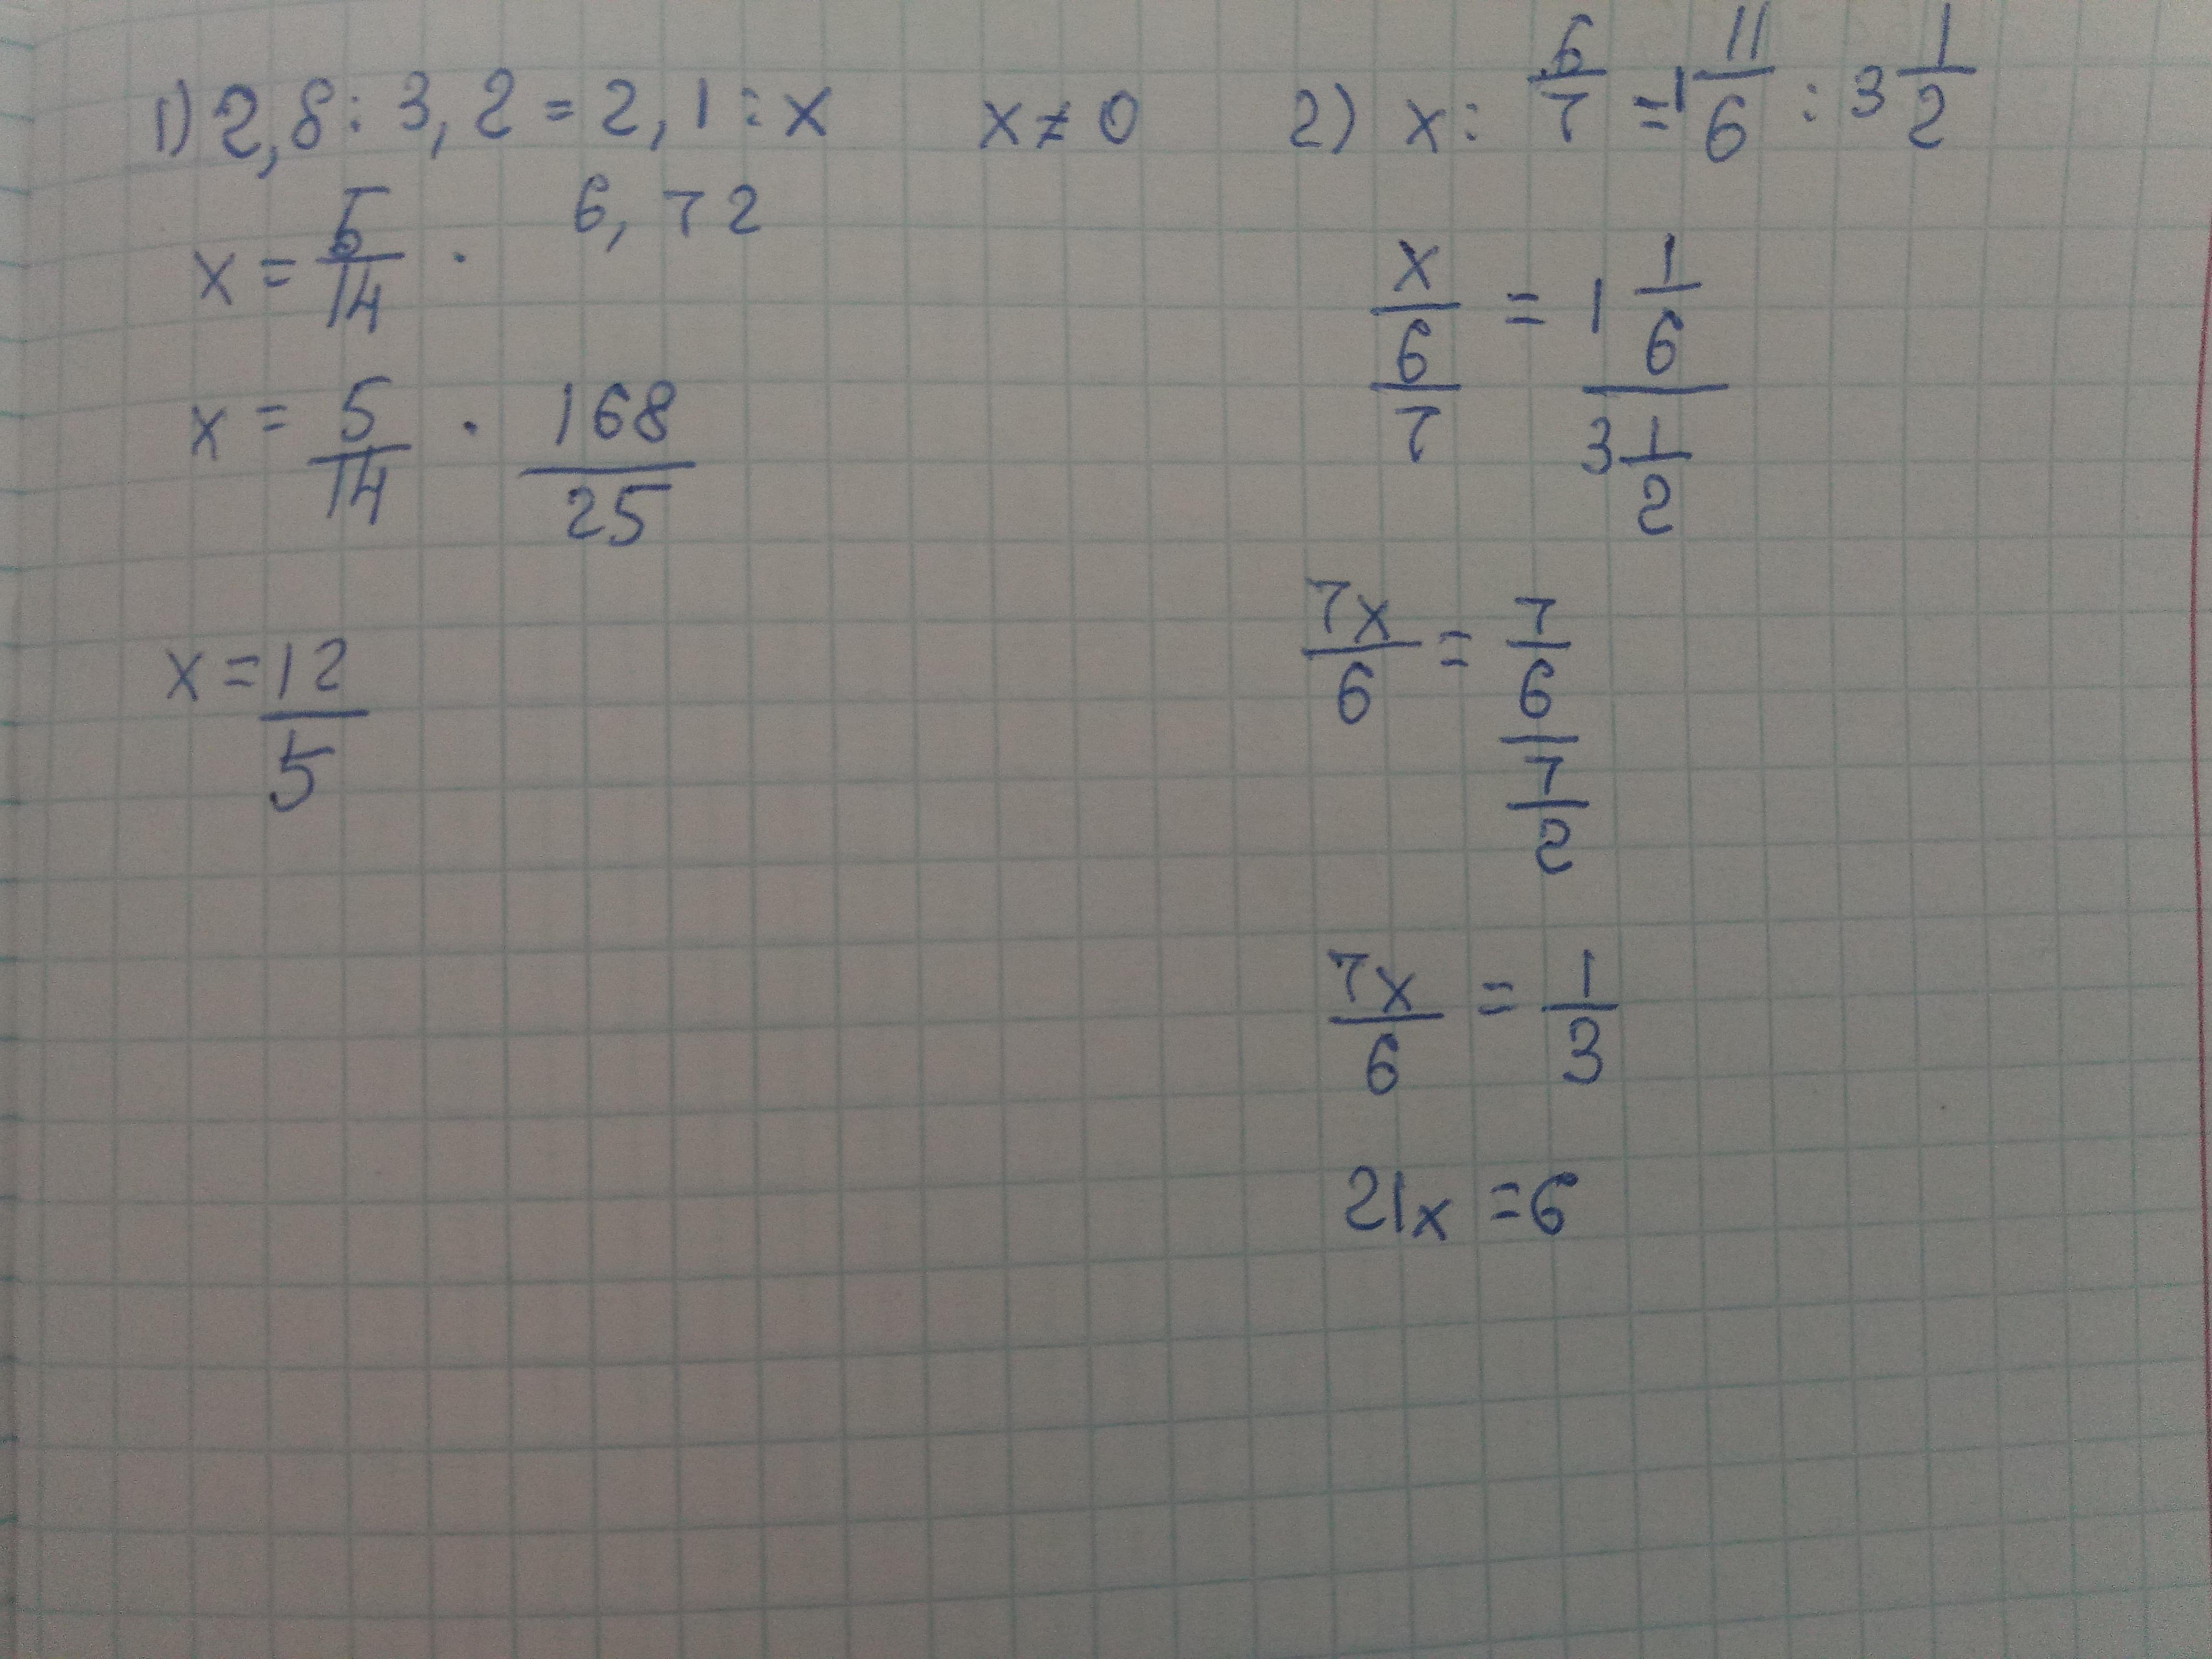 1) 2,8 : 3,2 = 2,1 : x    x ≠ 0
x = 5/14 · 6,72
x = 5/14 · 168/25
x = 12/5
2) x : 6/7 = 1 11/6 : 3 1/2
x/(6/7) = (1 1/6)/(3 1/2)
7x/6 = (7/6)/(7/2)
7x/6 = 1/3
21x = 6